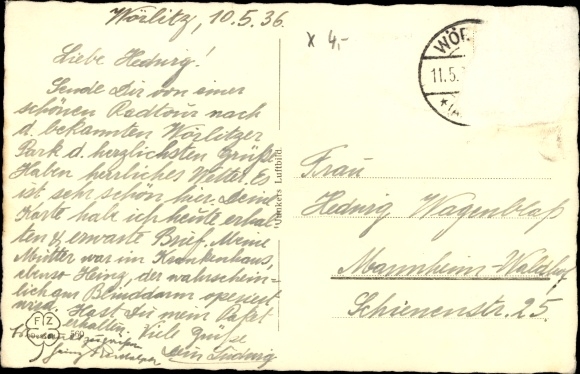 Wörlitz, 10.5.36.
Liebe Hedwig!
Sende Dir von einer
schönen Radtour nach
d. bekannten Wörlitzer
Park d. herzlichsten Grüße
Haben herrliches Wetter. Es
ist sehr schön hier. Deine
Karte habe ich heute erhal-
ten & erwarte Brief. Meine
Mutter war im Krankenhaus,
ebenso Heinz, der wahrschein-
lich am Blinddarm operiert
wird. Hast Du mein Paket
erhalten. Viele Grüße
Dein Ludwig
F Z
560
Junkers Luftbild.
x 4,-
WÖR
11.5.
Frau
Hedwig Wagenblaß
Mannheim-Waldhof
Schienenstr. 25.